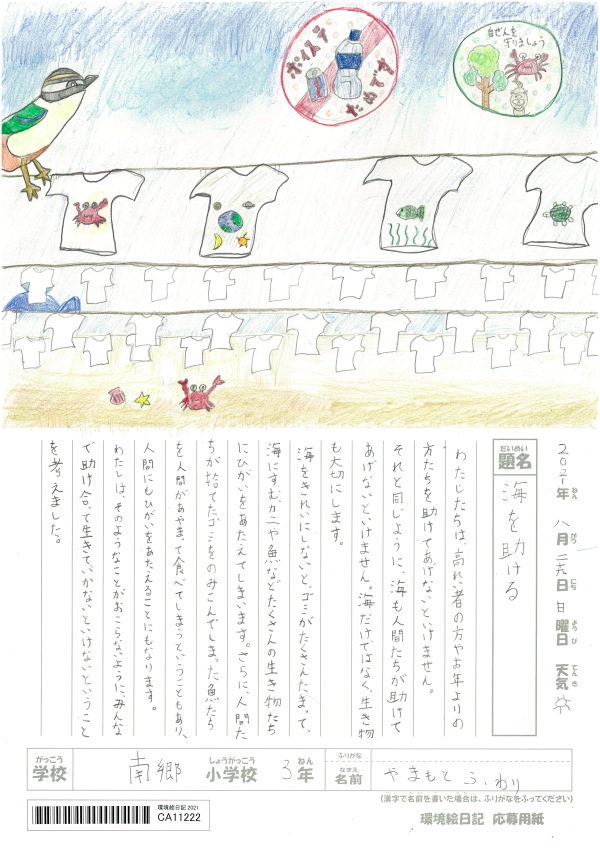 ポイステ
だめです
自ぜんを
守りましょう
2021年 八月 二十九日 日曜日 天気
ねん がつ にち ようび てんき
だいめい
題名
海を助ける
わたしたちは、高れい者の方やお年よりの
方たちを助けてあげないといけません。
それと同じように、海も人間たちが助けて
あげないといけません。海だけではなく、生き物
も大切にします。
海をきれいにしないと、ゴミがたくさんたまって、
海にすむカニや魚などたくさんの生き物たち
にひがいをあたえてしまいます。さらに、人間た
ちが捨てたゴミをのみこんでしまった魚たち
を人間があやまって食べてしまうということもあり、
人間にもひがいをあたえることにもなります。
わたしは、そのようなことがおこらないように、みんな
で助け合って生きていかないといけないということ
を考えました。
がっこう
学校
南郷
しょうがっこう
小学校
3年
ねん
ふりがな
なまえ
名前
やまもと ふわり
(漢字で名前を書いた場合は、ふりがなをふってください)
環境絵日記 2021
CA11222
環境絵日記 応募用紙